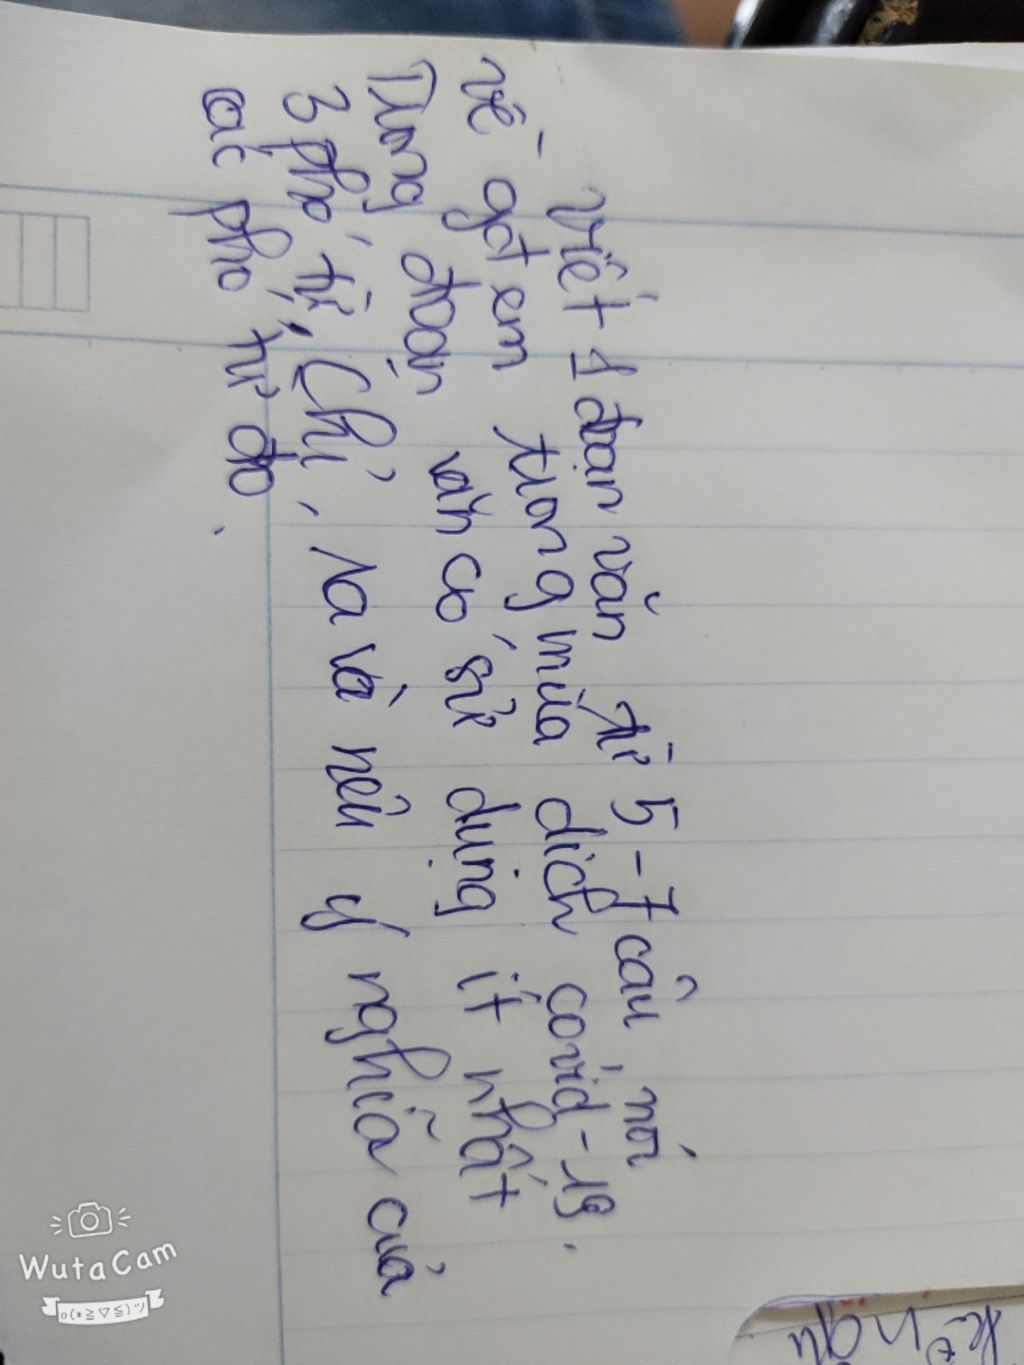 Viết 1 đoạn văn từ 5-7 câu nói
về gđ em trong mùa dịch covid-19.
Trong đoạn văn có sử dụng ít nhất
3 phó từ, Chỉ, ra và nêu ý nghĩa của
các phó từ đó.
WutaCam
o(*≧▽≦)ツ